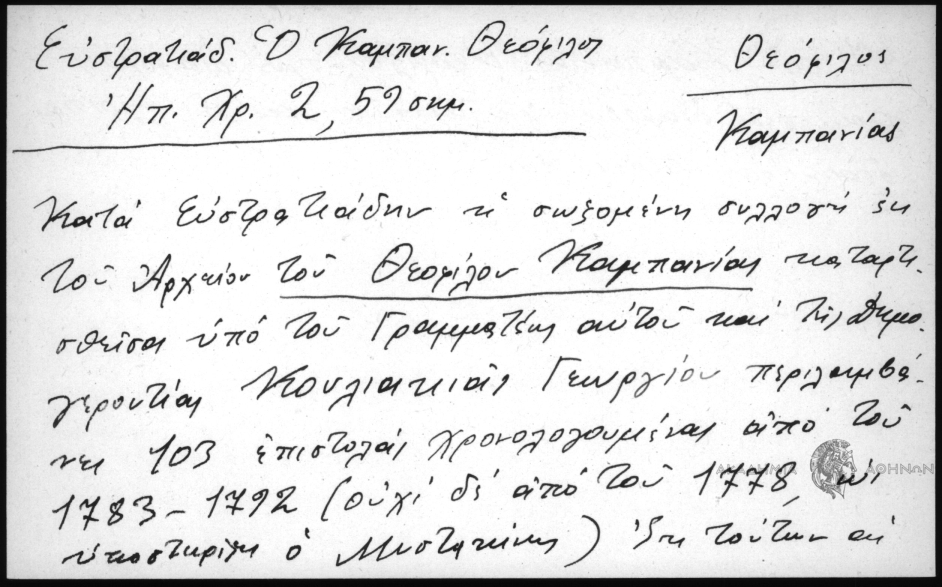 Εὐστρατιάδ. Ὁ Καμπαν. Θεόφιλος
Ἠπ. Χρ. 2, 59 σημ.
Θεόφιλος
Καμπανίας
Κατά Εὐστρατιάδην ἡ σωζομένη συλλογή ἐκ
τοῦ Ἀρχείου τοῦ Θεοφίλου Καμπανίας καταρτι-
σθεῖσα ὑπό τοῦ Γραμματέως αὐτοῦ καί τῆς Δημο-
γεροντίας Κουλιακιᾶς Γεωργίου περιλαμβά-
νει 103 ἐπιστολάς χρονολογουμένας ἀπό τοῦ
1783-1792 (οὐχί δέ ἀπό τοῦ 1778, ὡς
ὑποστηρίζει ὁ Μυστακίδης) Ἐκ τούτων αἱ
ΑΚΑΔΗΜΙΑ ΑΘΗΝΩΝ